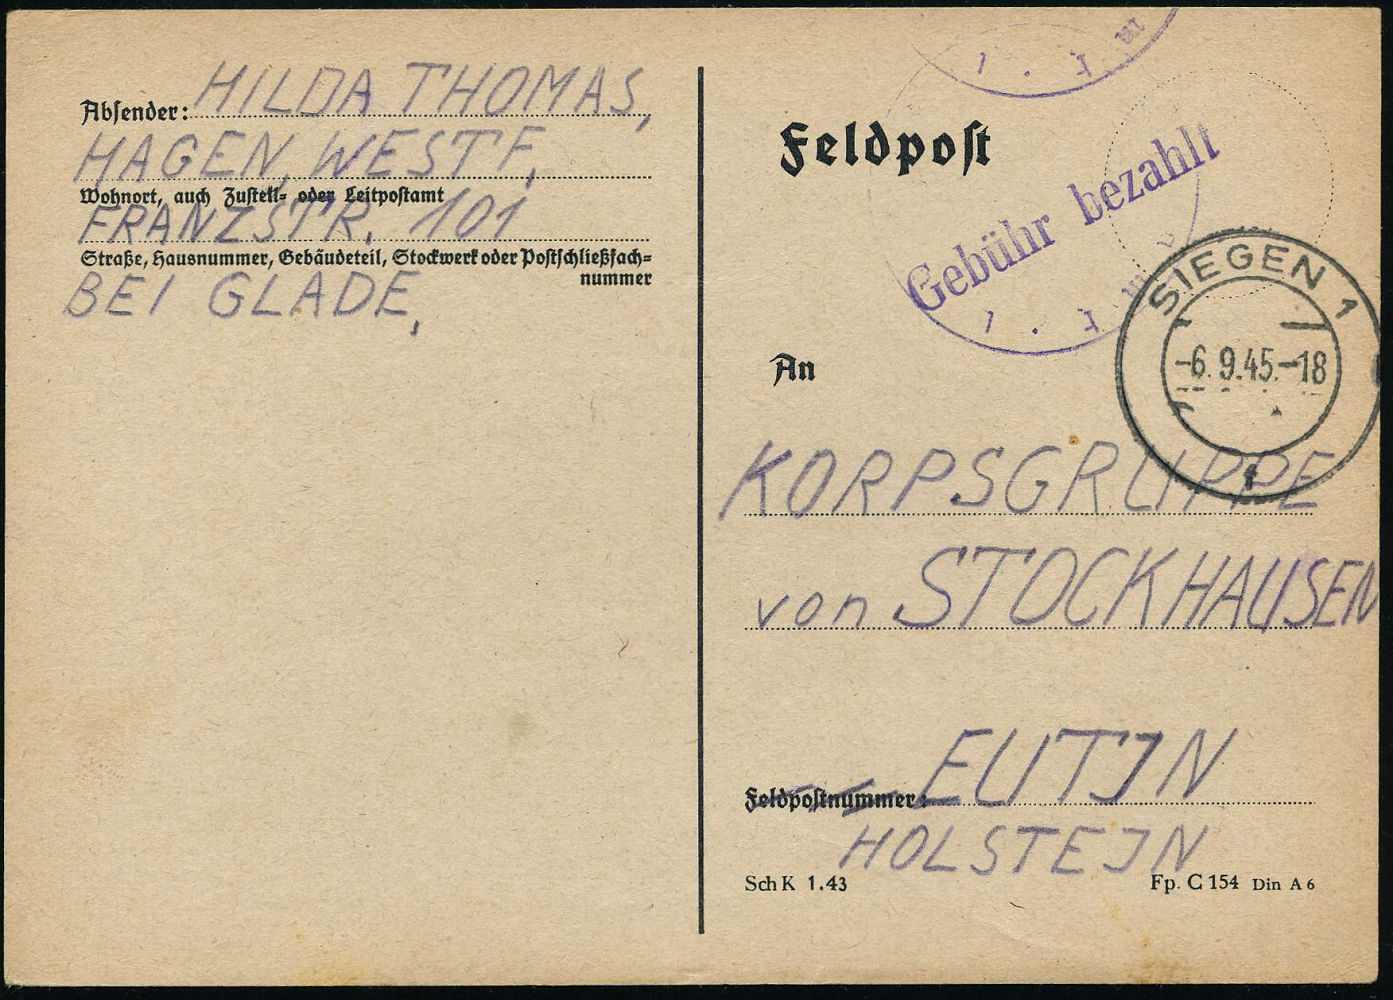 Absender: HILDA THOMAS,
HAGEN, WESTF,
Wohnort, auch Zustell- oder Leitpostamt
FRANZSTR. 101
Straße, Hausnummer, Gebäudeteil, Stockwerk oder Postschließfach-
nummer
BEI GLADE,
Feldpost
Gebühr bezahlt
SIEGEN 1
-6.9.45.-18
f
An
KORPSGRUPPE
von STOCKHAUSEN
Feldpostnummer: EUTJN
HOLSTEJN
Sch K 1.43
Fp. C 154 Din A 6